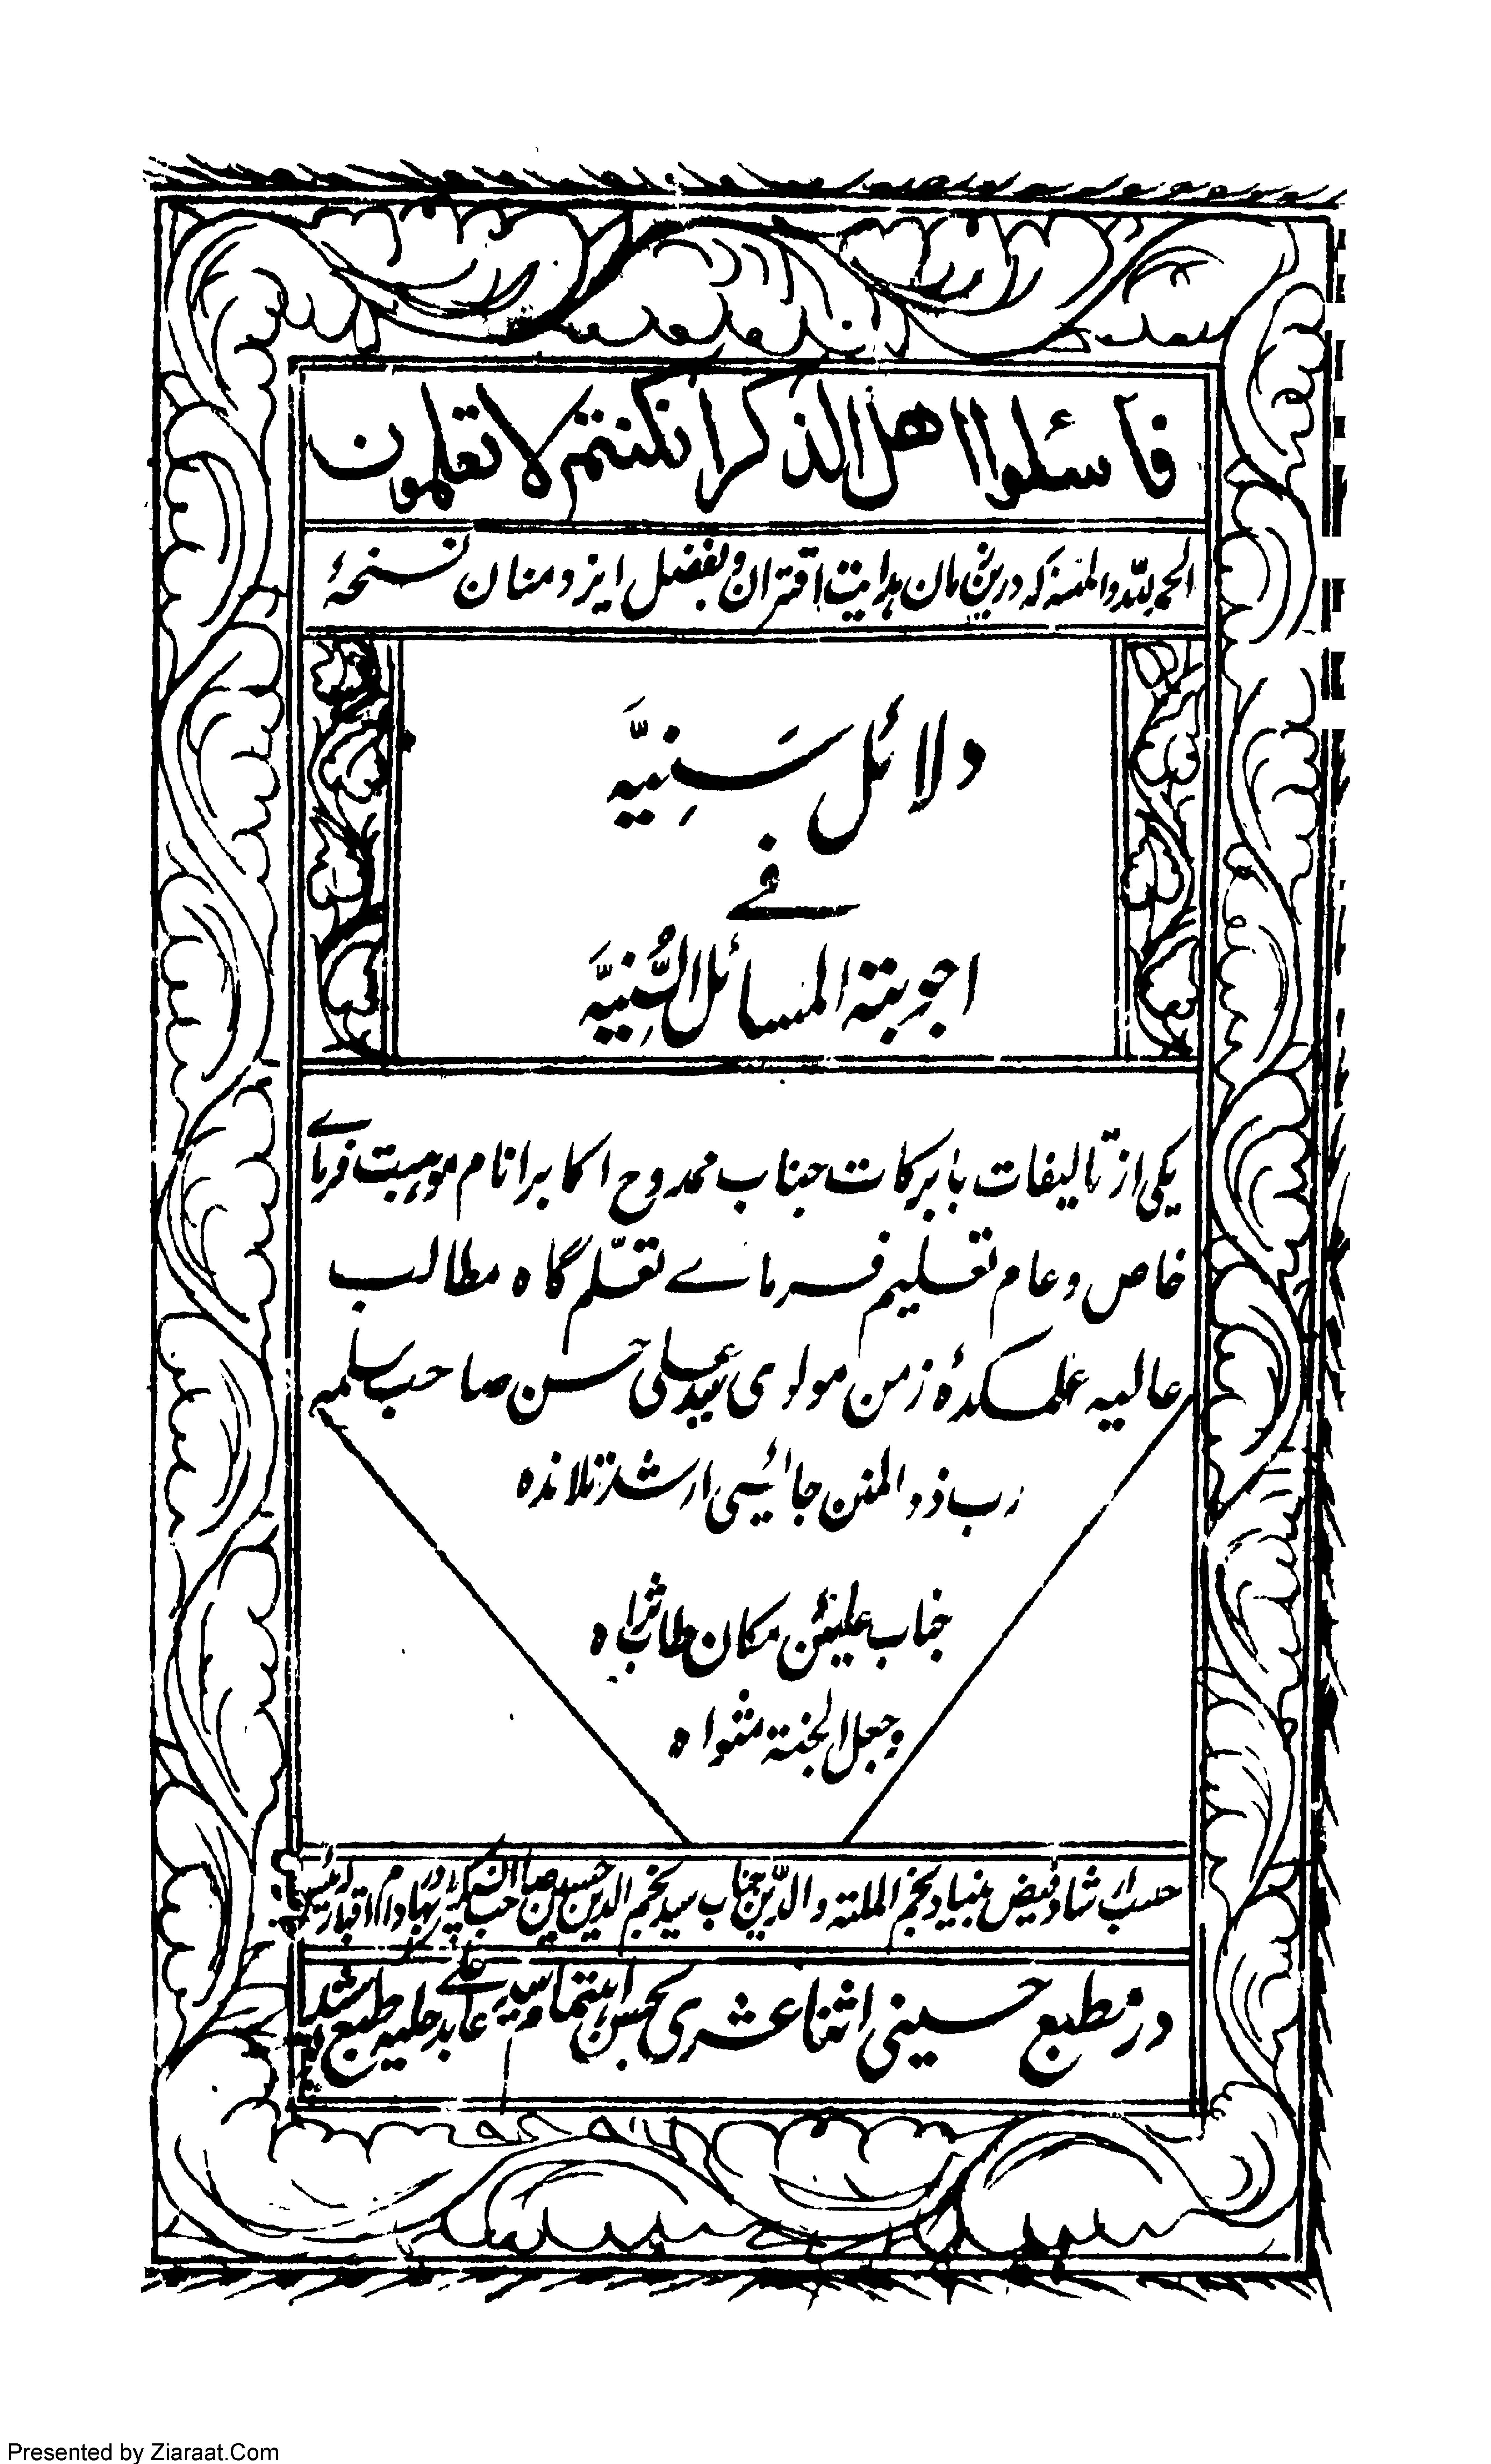 فاسئلوا اهل الذکر انکنتم لا تعلمون
الحمد للہ والمنہ کہ درین زمان ہدایت اقتران و بفضل ایزد منان نسخۂ
دلائل سَنِیَّہ
فے
اجوبتہ المسائل السُّنِیَّہ
یکی از تالیفات بابرکات جناب ممدوح اکابر انام موہبت فرماے
خاص و عام تعلیم فرماے تعلّم گاہ مطالب
عالیہ علمکدۂ زمن مولوی سید علی حسن صاحب سلمہ
رب ذو المنن جائیسی ارشد تلامذہ
جناب علیین مکان طاب ثراہ
وجعل الجنۃ مثواہ
حسب ارشاد فیض بنیاد نجم الملتہ والدّین جناب سید نجم الدین حسین صاحب بہادر دام اقبالہ
در مطبع حسینی اثنا عشری بحسن اہتمام سید عابد علے حلیہ طبع
Presented by Ziaraat.Com